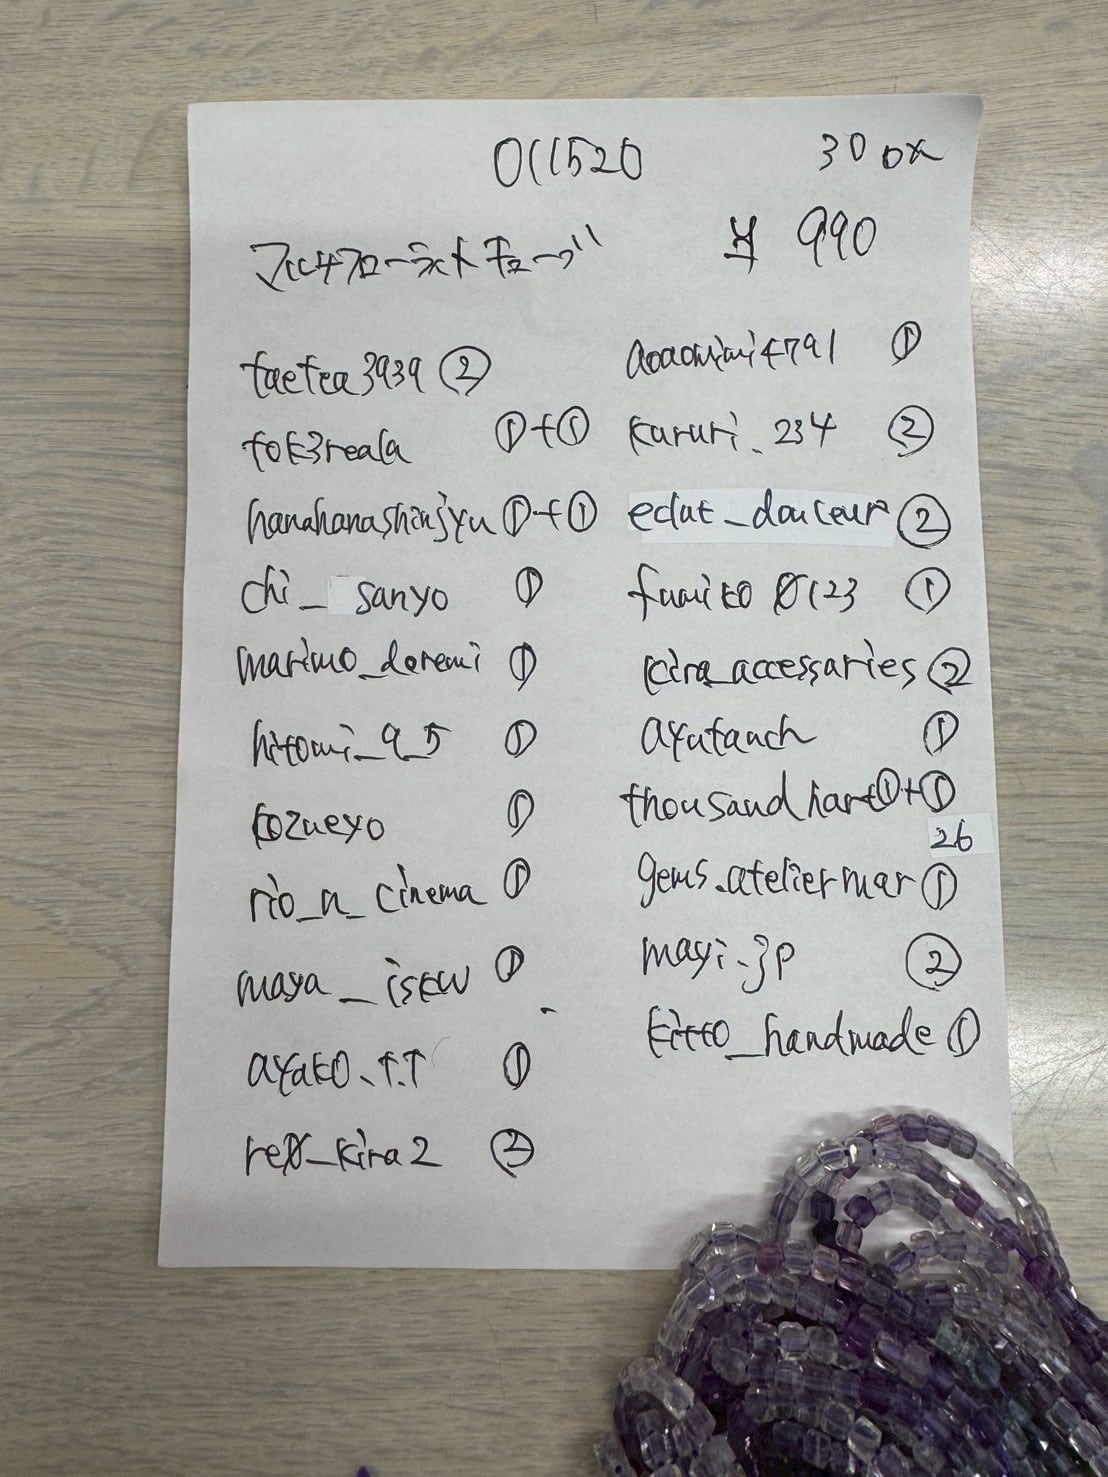 011520
30 px
マルチフローライトチューブ
¥ 990
taetea3939 ②
tok3reala ①+①
hanahanashinjyu ①+①
chi_sanyo ①
marimo_doremi ①
hitomi_9_5 ①
kozueyo ①
rio_n_cinema ①
maya_iskw ①
ayako.t.t ①
re8_kira2 ②
aoaomimi4791 ①
kururi_234 ②
eclat_douceur ②
fumiko0123 ①
kira_accessaries ②
ayutanch ①
thousandhart ①+①
26
gems.ateliermar ①
mayi.jp ②
kitto_handmade ①